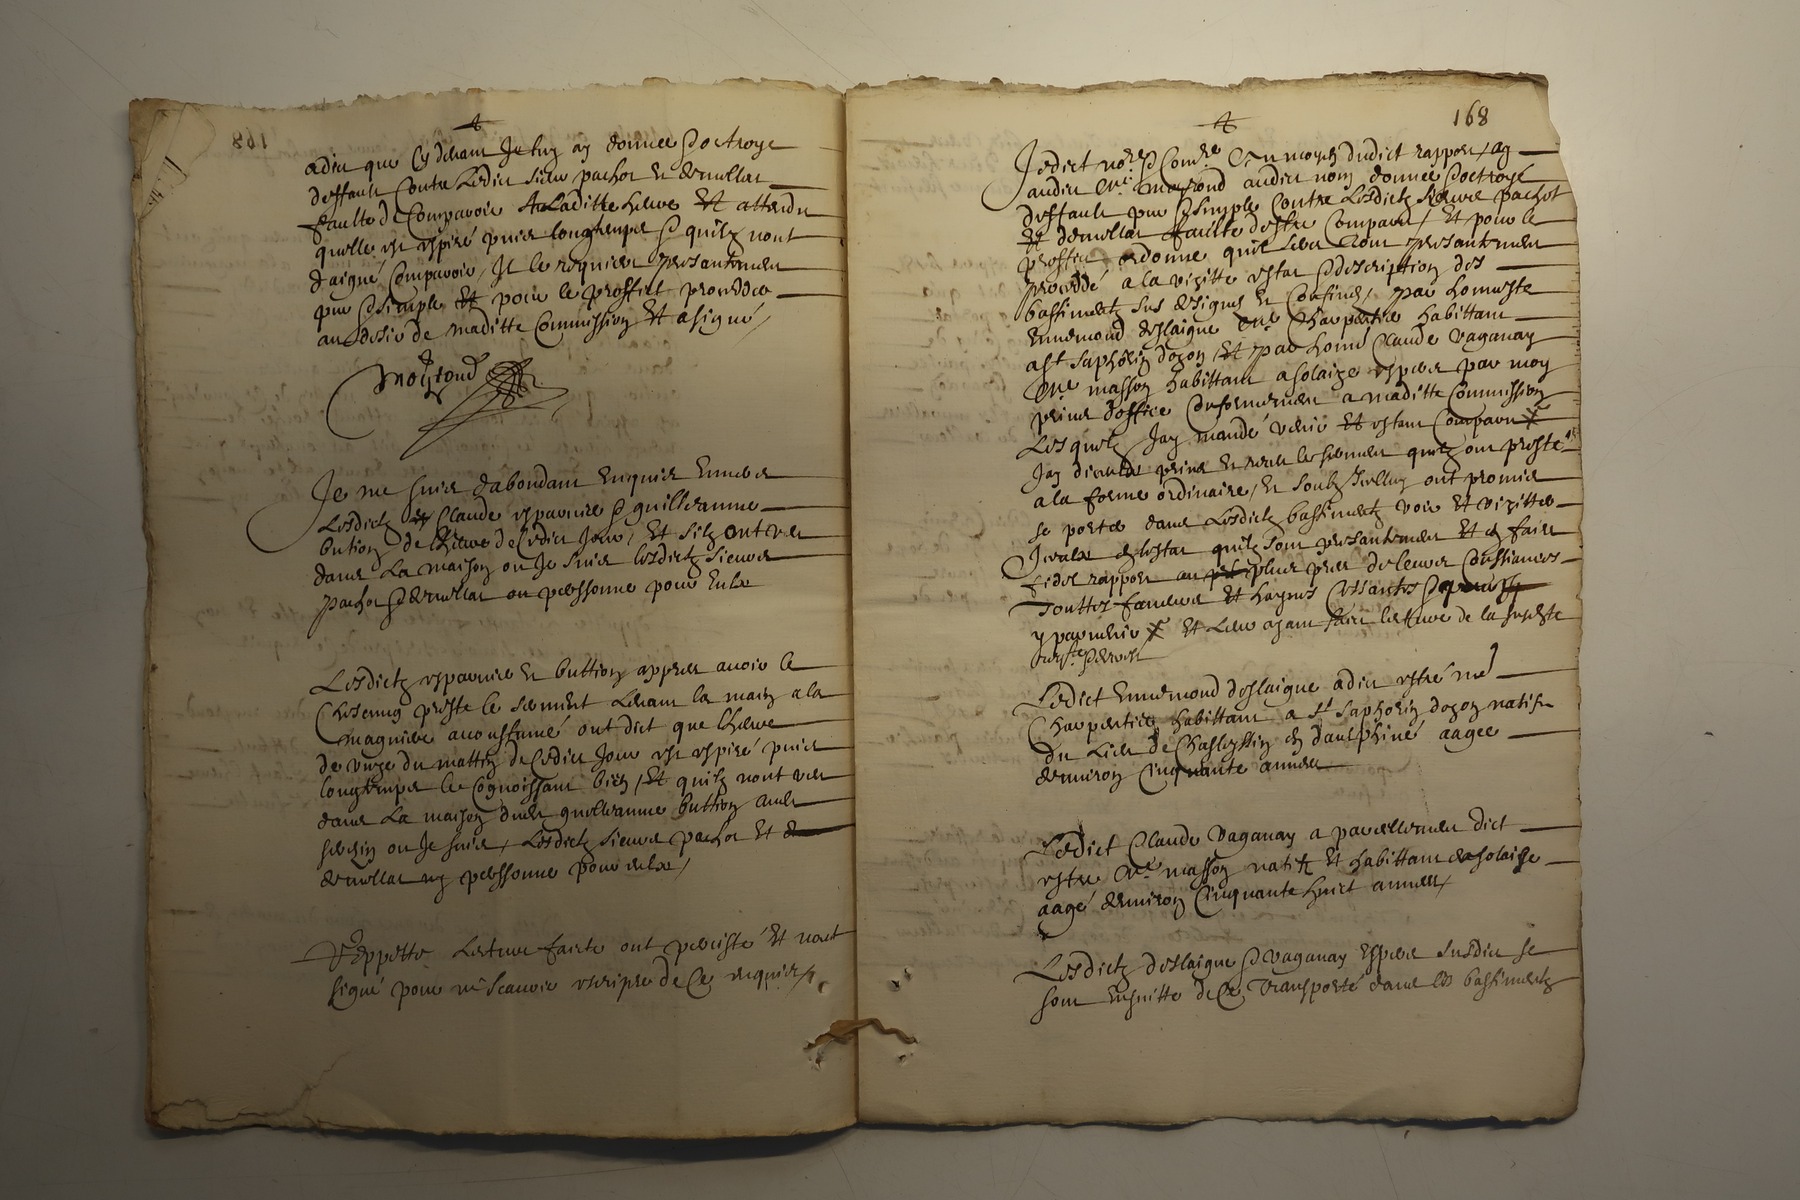 adict que cy devant Je luy ay donnee & octroye
deffault contre Ledict sieur pachot et demellat
faulte de Comparoir A Laditte heure Et attendu
quelle est expiré puis longtemps & quilz nont
daigné Comparoir, Je le requier presantement
pur & simple Et pour le proffict procedder
au desir de maditte Commission Et a signé /
Moyroud
Je me suis dabondant enquis envers
Lesdictz Claude esparvier & guilleaume
bution de lheure de Cedict Jour, Et silz ont veu
dans La maison ou Je suis lesdictz sieurs
pachot & demellat ou perssonne pour eulx
Lesdictz esparvier et buttion appres avoir le
Chescung preste le serment Levant la main a la
magniere accoustumé ont dict que lheure
de unze du mattin de Cedict Jour est expiré puis
longtemps le Cognoissant bien, Et quilz nont veu
dans La maison dudit guilleaume buttion
ou Je suis, Lesdictz sieurs pachot Et
demellat ny perssonne pour eulx,
Reppette Lecture faicte ont percisté Et nont
signé pour ne scavoir escripre de Ce enquis
168
Je dict no.re & Com.re Au moyen dudict rapport ay
audict M.e moyroud audict nom donnee & octroye
deffault pur & simple Contre Lesdictz sieurs pachot
Et demellat faulte destre Comparu, Et pour le
proffict ordonne quil sera presantement
proceddé a la vizitte estat & description des
bassimentz sus designes et Confines, par homeste
Ennemond deslaigue M.e Charpentier habittant
a S.t Saphorin dozon, Et par home Claude Vaganay
M.e masson habittant a solaize expers par moy
prins doffice Conformement a maditte Commission
Lesquelz Jay mandé venir Et estant Comparu
Jay diceulx prins et receu le serment quilz ont presté
a la forme ordinaire, et soubz Icelluy ont promis
se porter dans Lesdictz bassimentz voir Et vizitter
Iceulx en lestat quilz sont presantement Et en faire
fidel rapport au plus pres de leurs Consciances
Touttes faveurs Et haynes Cessantes
y parvenir Et Leur ayant faict lecture de la
Ledict Ennemond deslaigue a dict estre M.e
Charpentier habittant a S.t Saphorin dozon natif
du Lieu de Chasleyssin en dauphiné aagee
denviron Cinquante annees
Ledict Claude Vaganay a pareillement dict
estre M.e masson natif Et habittant de solaise
aagé denviron Cinquante huict annees,
Lesdictz deslaigue & Vaganay Expers susdict se
sont ensuitte de Ce Transporté dans les bassimentz